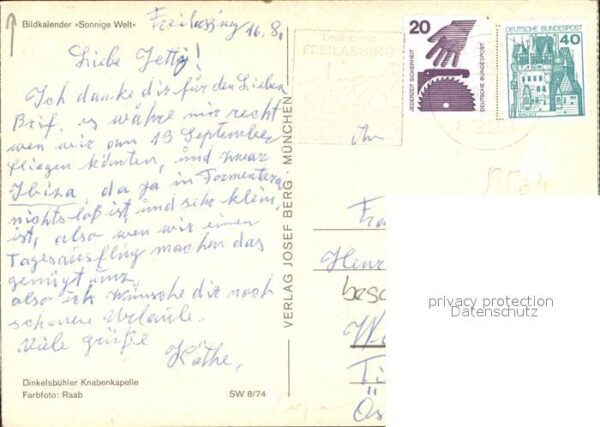 Bildkalender »Sonnige Welt«
Freilassing 16.8.
Liebe Jetty!
Ich danke dir für den Lieben
Brief, es währe mir recht
wen wir am 19 September
fliegen könten, und zwar
Ibiza da ja in Formentera
nichts loß ist und sehr klein,
ist, also wen wir einen
Tagesausflug machen das
genügt uns
also ich wünsche dir noch
schönene Urlaub.
Viele grüße
Käthe,
Dinkelsbühler Knabenkapelle
Farbfoto: Raab
SW 8/74
VERLAG JOSEF BERG · MÜNCHEN
FREILASSING
20
JEDERZEIT SICHERHEIT
DEUTSCHE BUNDESPOST
DEUTSCHE BUNDESPOST
40
Henr
besc
W
Ti
Ös
privacy protection
Datenschutz